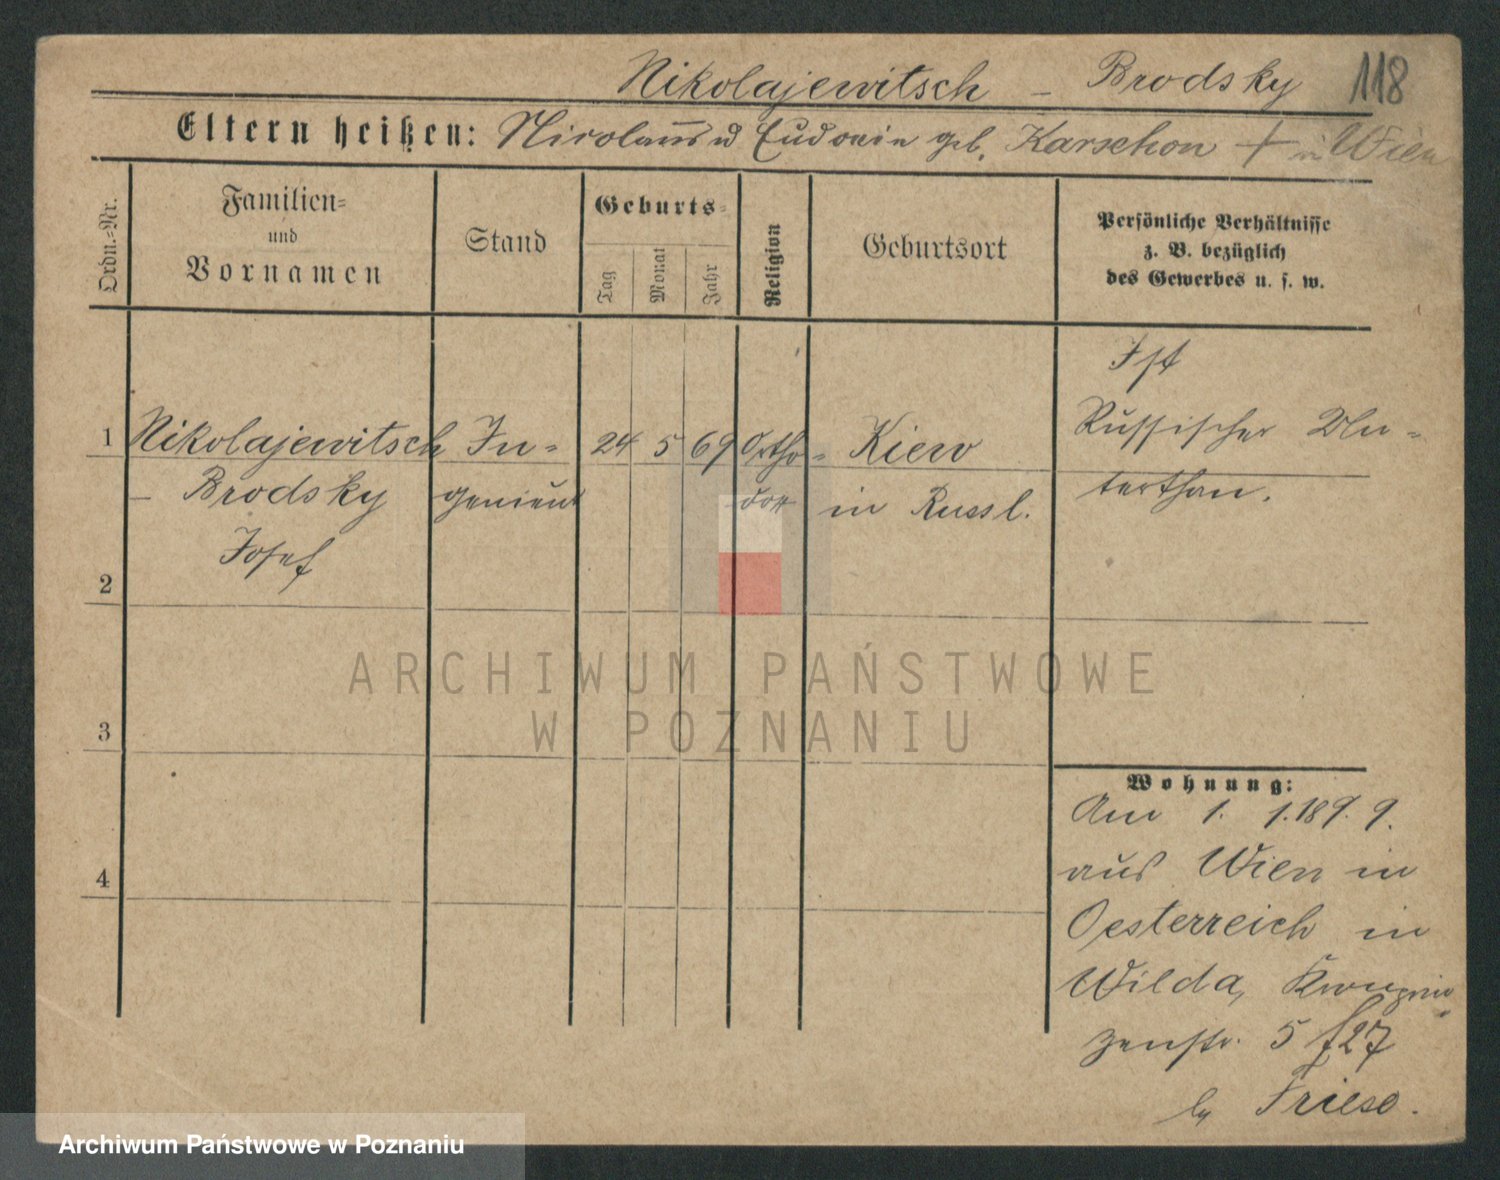 Nikolajewitsch - Brodsky 118
Eltern heißen: Nicolaus u Eudoxin geb. Karschon + in Wien
Ordn.=Nr.
Familien=
und
Vornamen
Stand
Geburts=
Tag
Monat
Jahr
Religion
Geburtsort
Persönliche Verhältnisse
z. B. bezüglich
des Gewerbes u. s. w.
1 Nikolajewitsch
- Brodsky
Josef
In=
genieur
24 5 69
Ortho=
dox
Kiew
in Russl.
Ist
Russischer Un=
terthan.
2
3
4
Wohnung:
Am 1. 1. 1899.
aus Wien in
Oesterreich in
Wilda, Kronprin=
zenstr. 5
by Friese.
ARCHIWUM PAŃSTWOWE
W POZNANIU
Archiwum Państwowe w Poznaniu